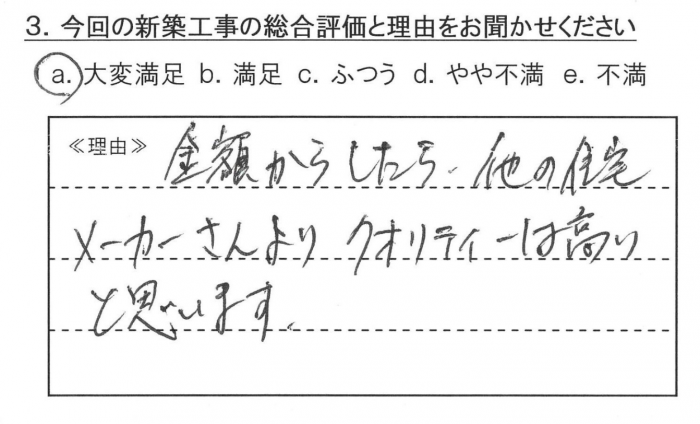 3. 今回の新築工事の総合評価と理由をお聞かせください
a. 大変満足 b. 満足 c. ふつう d. やや不満 e. 不満
≪理由≫ 金額からしたら、他の住宅
メーカーさんより クオリティーは高い
と思います。